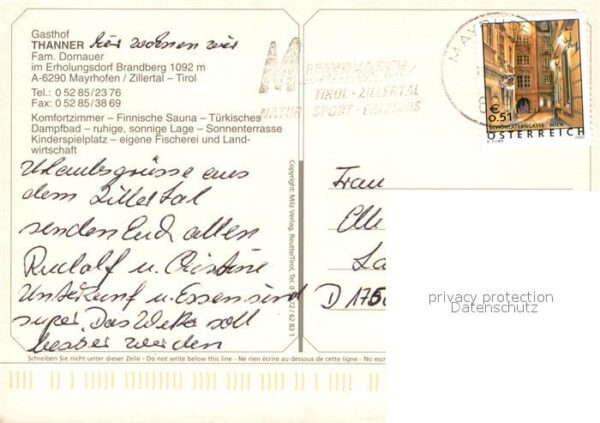 Gasthof
THANNER hier wohnen wir
Fam. Dornauer
im Erholungsdorf Brandberg 1092 m
A-6290 Mayrhofen / Zillertal – Tirol
Tel.: 0 52 85/23 76
Fax: 0 52 85/38 69
Komfortzimmer – Finnische Sauna – Türkisches
Dampfbad – ruhige, sonnige Lage – Sonnenterrasse
Kinderspielplatz – eigene Fischerei und Land-
wirtschaft
Urlaubsgrüsse aus
dem Zillertal
senden Euch allen
Rudolf u. Christine
Unterkunf u. Essen sind
super. Das Wetter soll
besser werden
Schreiben Sie nicht unter dieser Zeile - Do not write below this line - Ne rien écrire au dessous de cette ligne - Ne esc
Copyright: Milz Verlag, Reutte/Tirol, Tel. 0 56 72 / 62 83 1
MAYRHOFEN
TIROL · ZILLERTAL
NATUR · SPORT · ERLEBNIS
MAYRH
€
0.51
SCHÖNLATERNGASSE · WIEN
ÖSTERREICH
Frau
D 1750
privacy protection
Datenschutz